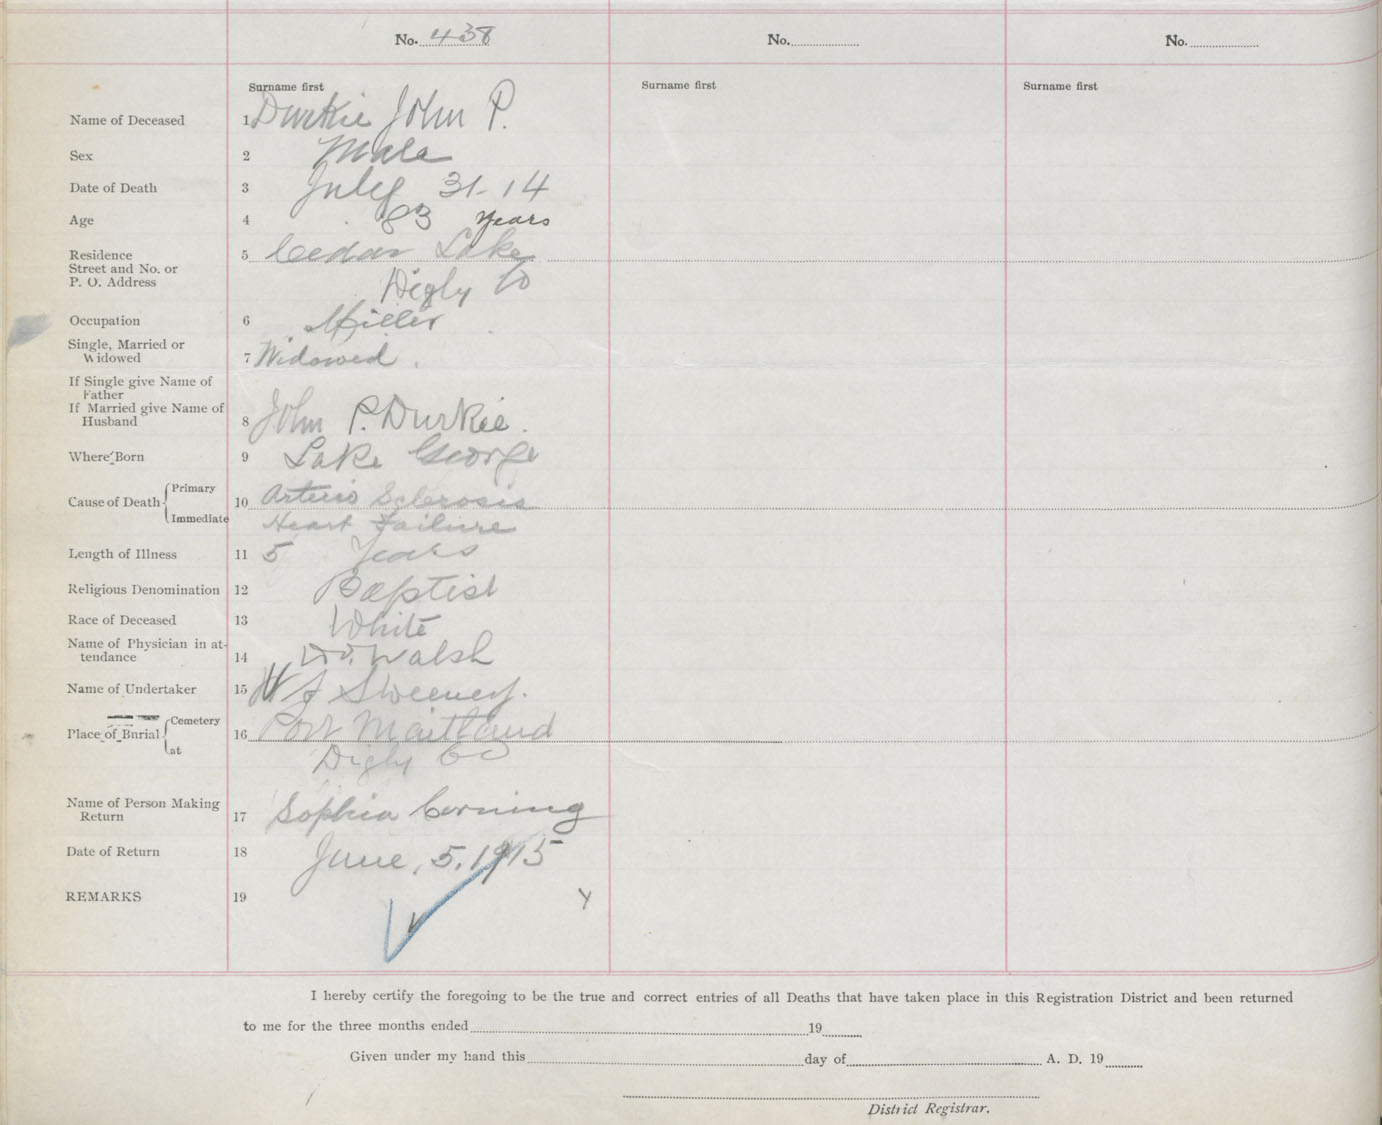 No. 438 No. No.
Surname first Surname first Surname first
Name of Deceased 1 Durkie John P.
Sex 2 Male
Date of Death 3 July 31-14
Age 4 83 years
Residence 5 Cedar Lake
Street and No. or
P. O. Address Digby Co
Occupation 6 Miller
Single, Married or
Widowed 7 Widowed.
If Single give Name of
Father
If Married give Name of
Husband 8 John P. Durkie.
Where Born 9 Lake George
Cause of Death Primary 10 Arterio Sclerosis
Immediate Heart Failure
Length of Illness 11 5 Years
Religious Denomination 12 Baptist
Race of Deceased 13 White
Name of Physician in at-
tendance 14 Dr. Walsh
Name of Undertaker 15 Sweeney.
Place of Burial Cemetery 16 Port Maitland
at Digby Co
Name of Person Making
Return 17 Sophia Corning
Date of Return 18 June, 5. 1915
REMARKS 19 Y
I hereby certify the foregoing to be the true and correct entries of all Deaths that have taken place in this Registration District and been returned
to me for the three months ended 19
Given under my hand this day of A. D. 19
District Registrar.